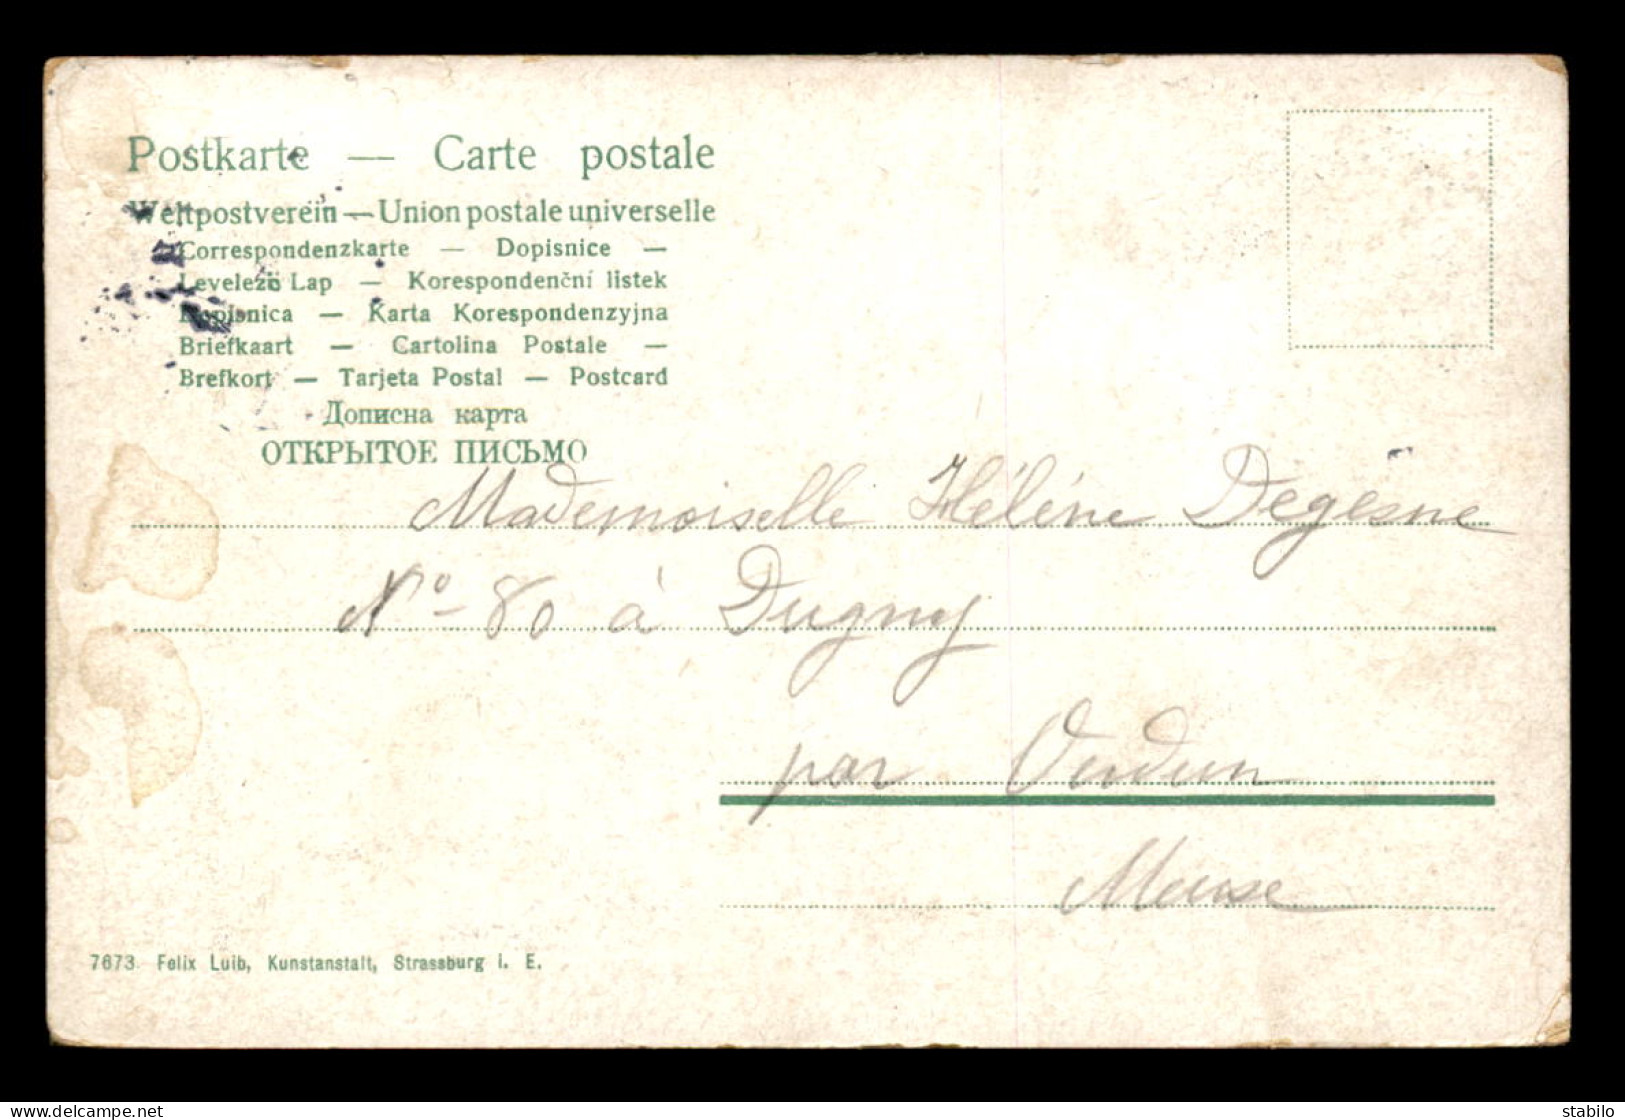 Postkarte — Carte postale
Weltpostverein — Union postale universelle
Correspondenzkarte — Dopisnice —
Levelező Lap — Korespondenční listek
Dopisnica — Karta Korespondenzyjna
Briefkaart — Cartolina Postale —
Brefkort — Tarjeta Postal — Postcard
Дописна карта
ОТКРЫТОЕ ПИСЬМО
Mademoiselle Hélène Degesne
No 80 à Dugny
par Verdun
Meuse
7673 Felix Luib, Kunstanstalt, Strassburg i. E.
stabilo
delcampe.net